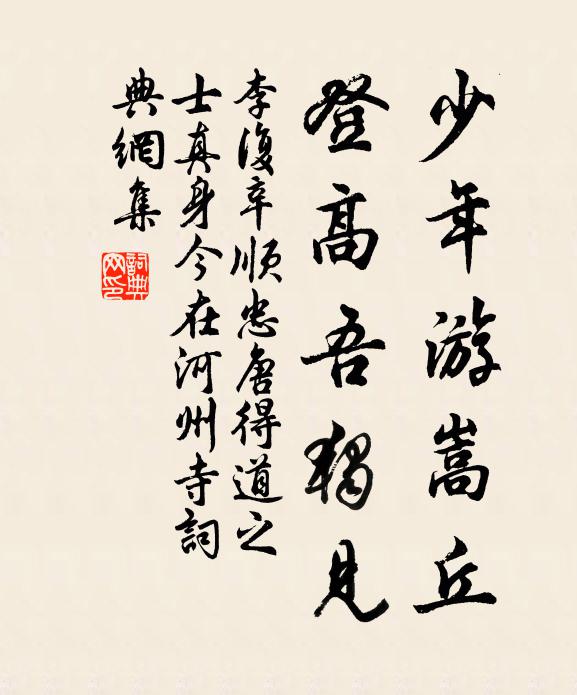 少年游嵩丘
登高吾獨見
李復辛順忠唐得道之
士真身今在河州寺詞
典網集
詞典网印